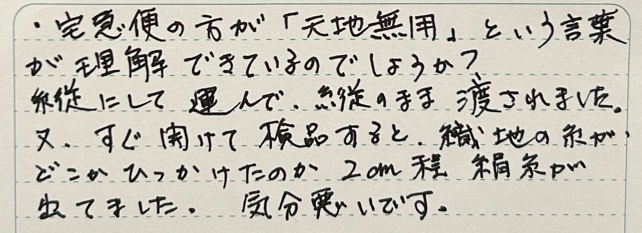 ・宅急便の方が「天地無用」という言葉
が理解できているのでしょうか?
縦にして運んで、縦のまま渡されました。
又、すぐ開けて検品すると、織地の糸が、
どこかひっかけたのか2cm程絹糸が
出てました。 気分悪いです。